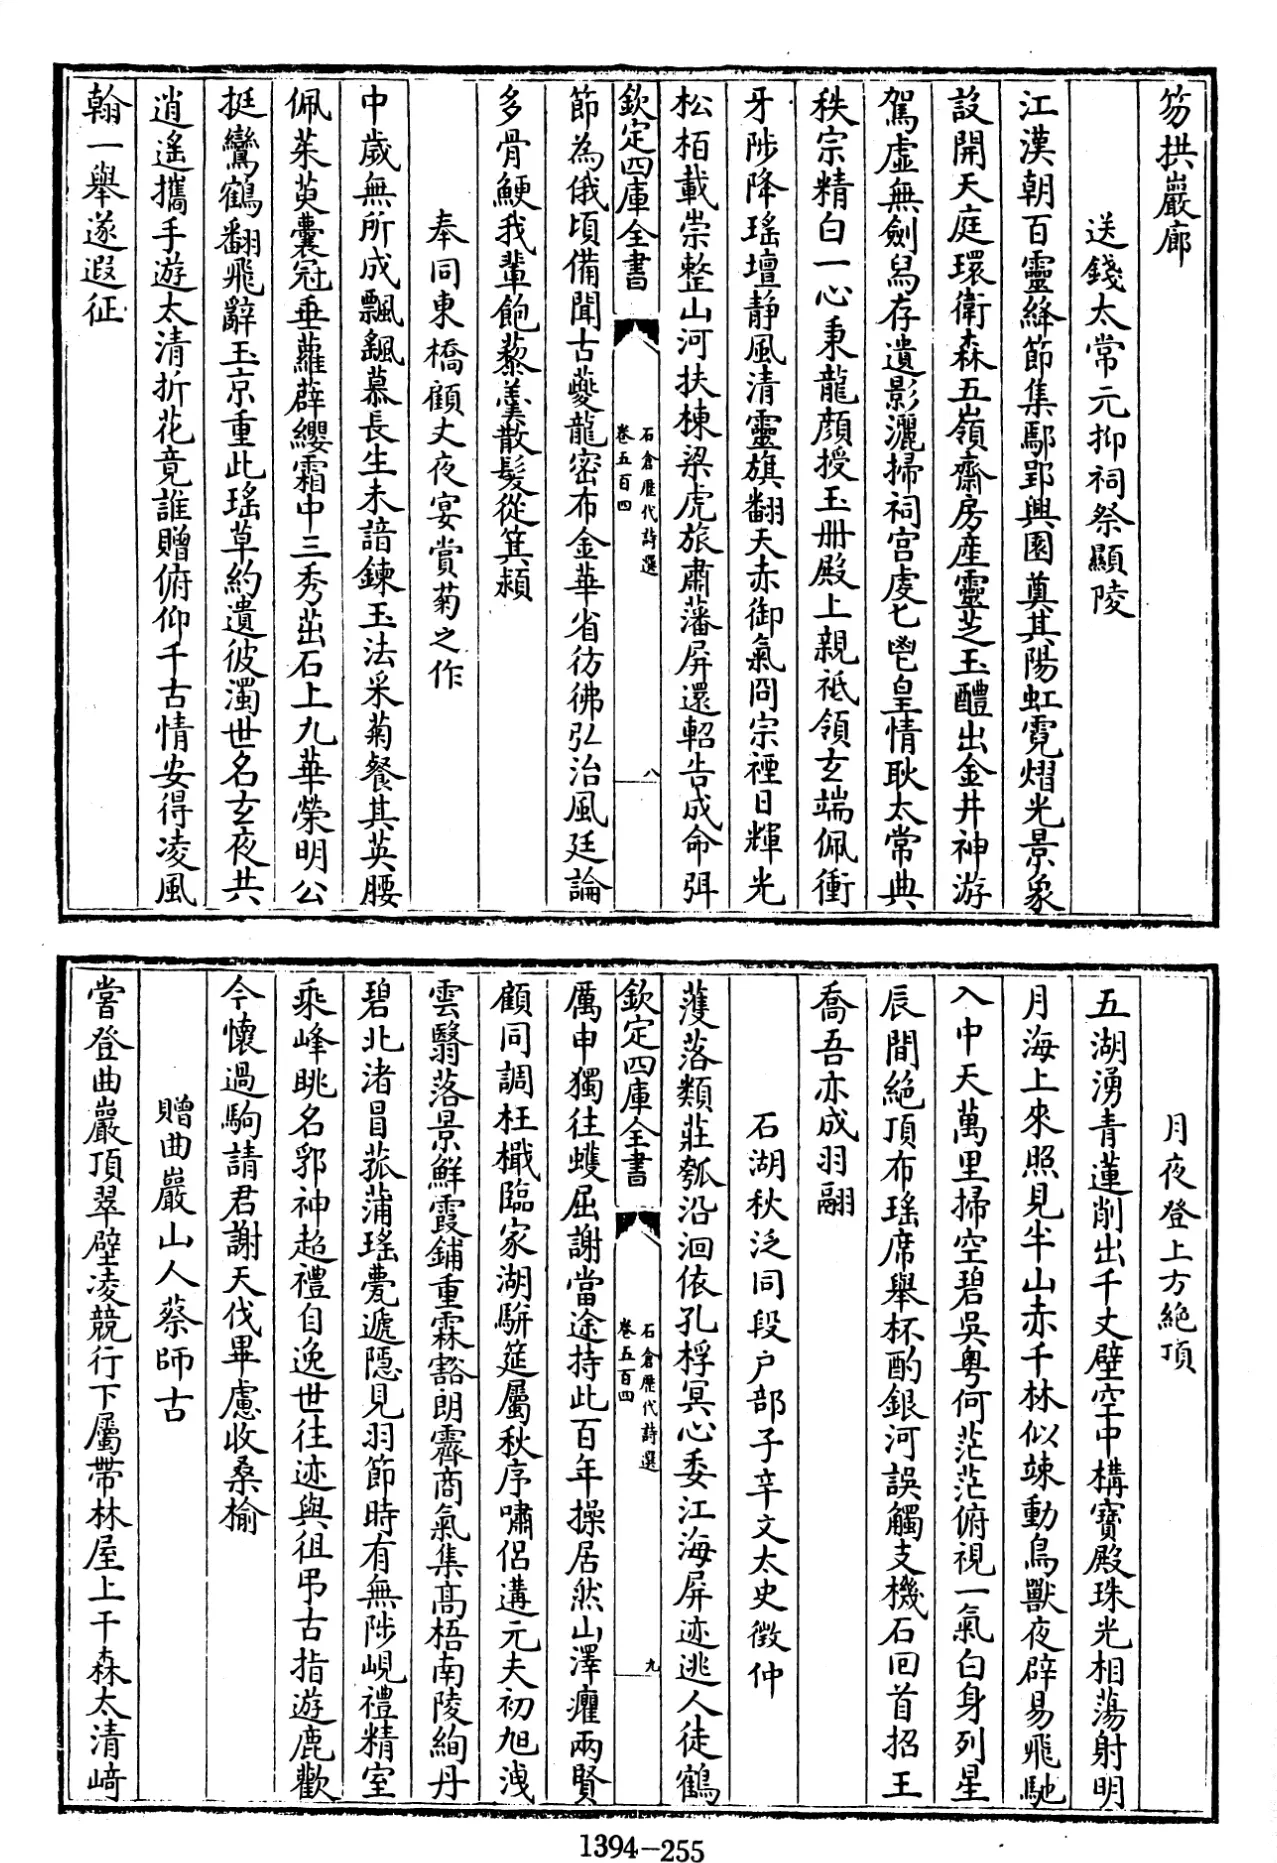 笏拱巖廊
送錢太常元抑祠祭顯陵
江漢朝百靈絳節集鄢郢興園奠其陽虹霓熠光景象
設開天庭環衛森五嶺齋房産靈芝玉醴出金井神游
駕虛無劍舄存遺影灑掃祠宫虔七鬯皇情耿太常典
秩宗精白一心秉龍顔授玉冊殿上親祗領玄端佩衝
牙陟降瑶壇静風清靈旗翻天赤御氣冏宗禋日輝光
松栢載崇整山河扶棟梁虎旅肅藩屏還軺告成命弭
欽定四庫全書
石倉歷代詩選
卷五百四
八
節為俄頃備聞古夔龍密布金華省彷彿弘治風廷論
多骨鯁我輩飽藜羮散髮從箕潁
奉同東橋顧丈夜宴賞菊之作
中歲無所成飄颻慕長生未諳鍊玉法采菊餐其英腰
佩茱萸囊冠垂蘿薜纓霜中三秀茁石上九華榮明公
挺鸞鶴翻飛辭玉京重此瑶草約遺彼濁世名玄夜共
逍遥攜手遊太清折花竟誰贈俯仰千古情安得凌風
翰一舉遂遐征
月夜登上方絶頂
五湖湧青蓮削出千丈壁空中構寳殿珠光相蕩射明
月海上來照見半山赤千林似竦動鳥獸夜辟易飛馳
入中天萬里掃空碧吳粤何茫茫俯視一氣白身列星
辰間絶頂布瑶席舉杯酌銀河誤觸支機石回首招王
喬吾亦成羽翮
石湖秋泛同段户部子辛文太史徴仲
濩落類莊瓠沿洄依孔桴冥心委江海屏迹逃人徒鶴
欽定四庫全書
石倉歷代詩選
卷五百四
九
厲申獨往蠖屈謝當途持此百年操居然山澤癯兩賢
顧同調枉檝臨家湖駢筵屬秋序嘯侶遘元夫初旭洩
雲翳落景鮮霞鋪重霖豁朗霽商氣集髙梧南陵絢丹
碧北渚冒菰蒲瑶甍遞隱見羽節時有無陟峴禮精室
乘峰眺名郛神超禮自逸世往迹與徂弔古指遊鹿歡
今懷過駒請君謝天伐畢慮收桑榆
贈曲巖山人蔡師古
嘗登曲巖頂翠壁凌兢行下屬帶林屋上干森太清﨑
1394-255